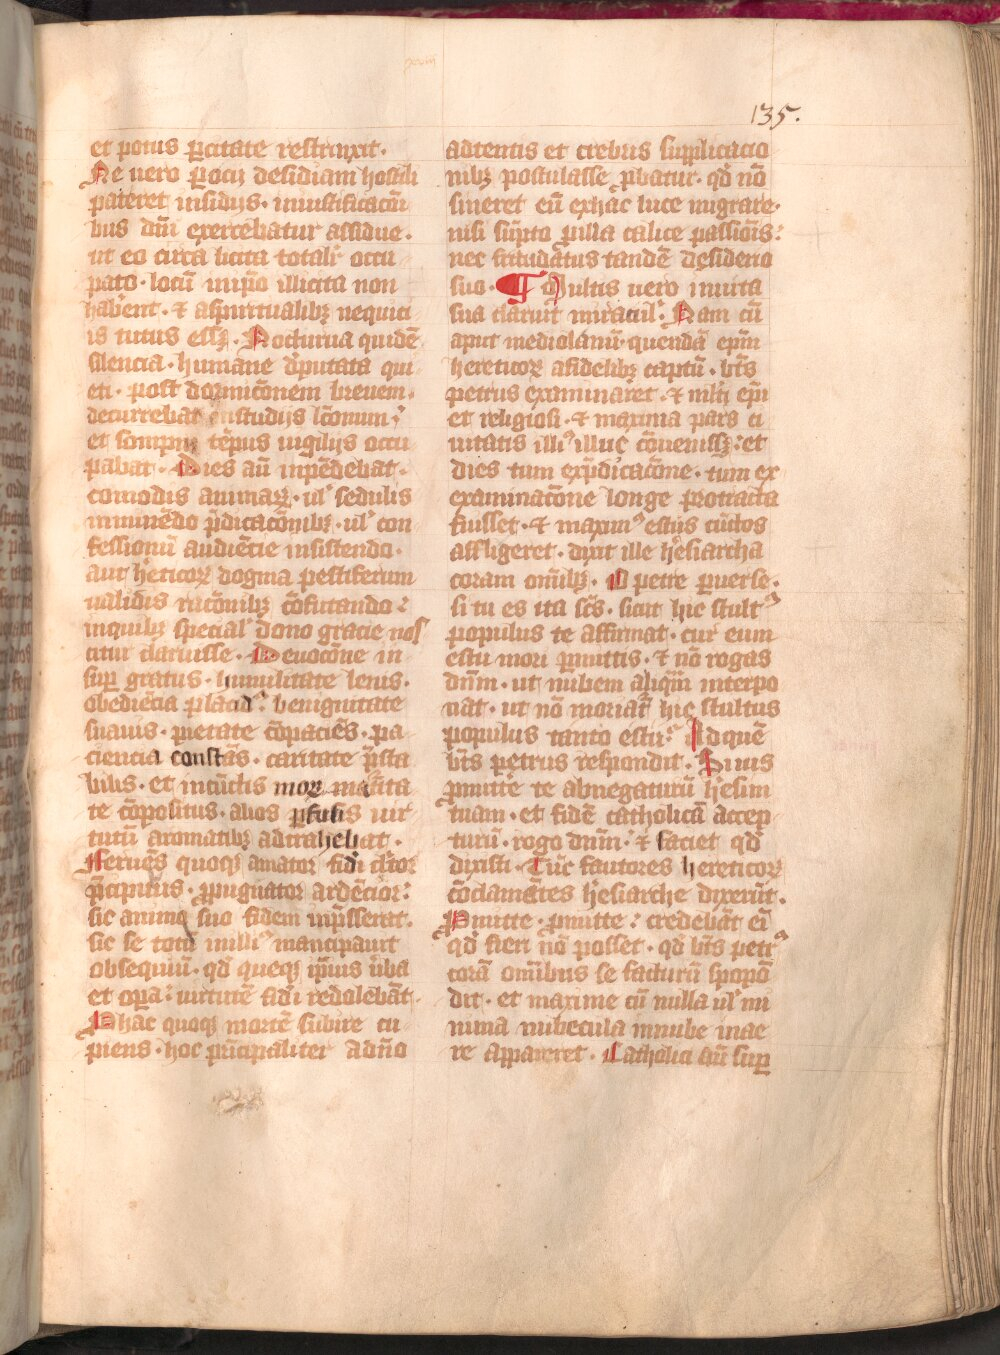 135.
et potus ꝑcitate restrinxit.
Ne uero ꝑ ocij desidiam hostili
pateret insidijs. in iustificacõi
bus dñi exercebatur assidue.
ut eo circa licita totalr̃ occu
pato. locũ in ip̃o illicita non
hab̃ent. ⁊ a sp̃iritualibꝫ nequici
is tutus eſſꝫ. Nocturna quidẽ
silencia. humane d̾putata qui
eti. post dormicõnem breuem.
decurrebat in studijs lc̃onum.
et sompni tẽpus uigilijs occu
pabat. Dies aũ inpẽdebat.
comodis animaꝝ. ul̾ sedulis
inminẽdo p̃dicacõnibꝫ. ul̾ con
fessionũ audiẽcie insistendo.
aut hẽticoꝝ dogma pestiferum
ualidis rac̃onibꝫ cõfutando:
in quibꝫ special̾ dono gracie nos
citur claruisse. Deuoc̃one in
suꝑ gratus. humilitate lenis.
obediẽcia placid᷒. benignitate
suauis. pietate cõpaciẽs. pa
ciencia constãs. caritate p̃sta
bilis. et in cũctis moꝝ mat̾ita
te cõpositus. alios ꝑfusis uir
tutũ aromatibꝫ adtrahebat.
Feruẽs quoqꝫ amator fidei cl̾tor
p̃cipuus. ꝓpugnator ardẽcior:
sic animo suo fidem inp̃sserat.
sic se totũ illi᷒ mancipauit
obsequiũ. qd̾ queqꝫ ip̃ius ũba
et oꝑa: uirtutẽ fidei redolebãt.
Ꝓ hac quoqꝫ mortẽ subire cu
piens. hoc p̃ncipaliter a dño
adtentis et crebris supplicacio
nibꝫ postulasse ꝓbatur. qd̾ nõ
sineret eũ ex hac luce migrare.
nisi sũpto ꝓ illa calice passiõis:
nec fraudatus tandẽ desiderio
suo. ¶ Multis uero in uita
sua claruit miracul̾. Nam cũ
aput mediolanũ quendã ep̃m
hereticoꝝ a fidelibꝫ captũ. bt̃s
petrus examinaret. ⁊ ml̾ti ep̃i
et religiosi. ⁊ maxima pars ci
uitatis illi᷒ illuc cõuenissꝫ: et
dies tum ex p̃dicac̃one. tum ex
examinac̃one longe protracta
fuisset. ⁊ maxim᷒ estus cũctos
affligeret. dixit ille hẽsiarcha
coram om̃ibꝫ. O petre ꝑuerse.
si tu es ita sc̃s. sicut hic stult᷒
populus te affirmat. cur eum
estu mori ꝑmittis. ⁊ nõ rogas
dñm. ut nubem aliqm̃ interpo
nat. ut nõ moriat̾ hic stultus
populus tanto estu. Ad quẽ
bt̃s petrus respondit. Si uis
ꝓmitte te abnegaturũ heresim
tuam. et fidẽ catholicã accep
turũ. rogo dñm. ⁊ faciet qd̾
dixisti. Tũc fautores hereticoꝝ
cõclamãtes hẽsiarche dixerũt.
Ꝓmitte. ꝓmitte: credebãt eĩ
qd̾ fieri nõ posset. qd̾ bt̃s petr᷒
corã om̃ibus se facturũ spopõ
dit. et maxime cũ nulla ul̾ mi
nima nubecula in nube inae
re appareret. Catholici aũ suꝑ